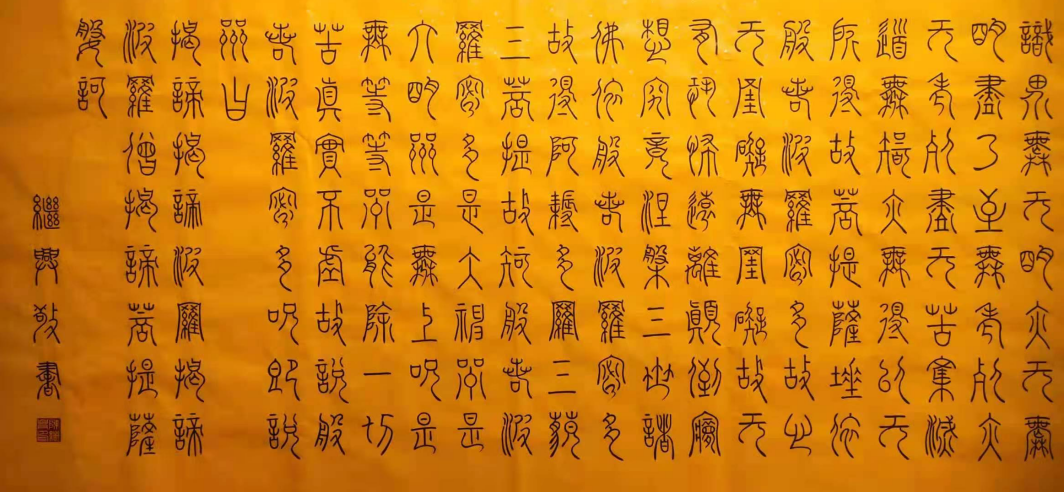 識界無无明亦无無
明盡乃至無老死亦
无老死盡无苦集滅
道無智亦無得以无
所得故菩提薩埵依
般若波羅蜜多故心
无罣礙無罣礙故无
有恐怖遠離顛倒夢
想究竟涅槃三世諸
佛依般若波羅蜜多
故得阿耨多羅三藐
三菩提故知般若波
羅蜜多是大神咒是
大明咒是無上咒是
無等等咒能除一切
苦真實不虛故說般
若波羅蜜多咒即說
咒曰
揭諦揭諦波羅揭諦
波羅僧揭諦菩提薩
婆訶
繼興敬書